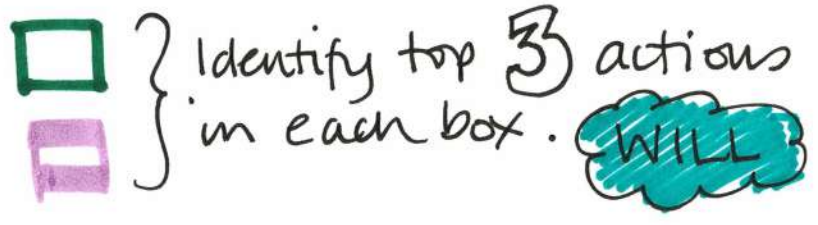 Identify top 3 actions
in each box.
WILL